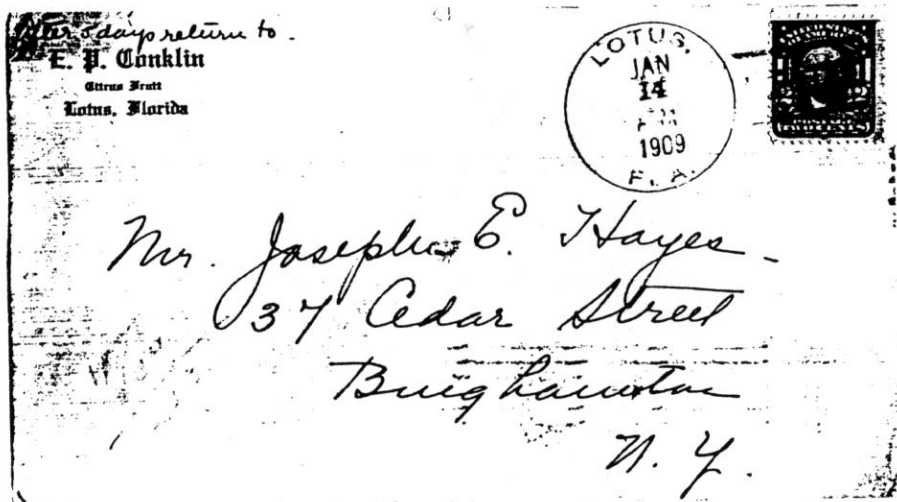 After 5 days return to.
E. P. Conklin
Citrus Fruit
Lotus, Florida
LOTUS,
JAN
14
1909
FLA.
Mr. Joseph E. Hayes.
37 Cedar Street
Binghamton
N. Y.